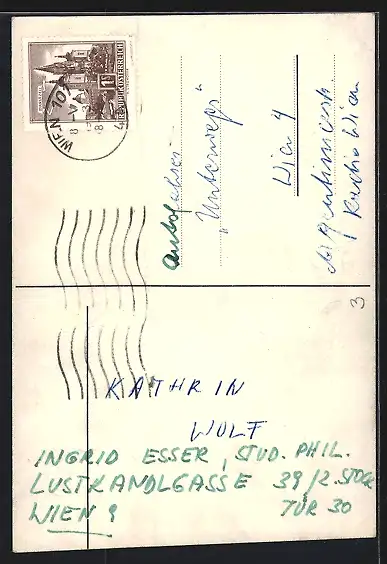 REPUBLIK ÖSTERREICH
WIEN 101
Autofahrer
"Unterwegs"
Wien 4
Argentinierstr.
Radio Wien
3
KATHRIN
WOLF
INGRID ESSER, STUD. PHIL.
LUSTKANDLGASSE 39/2. STOCK
WIEN 9 TÜR 30